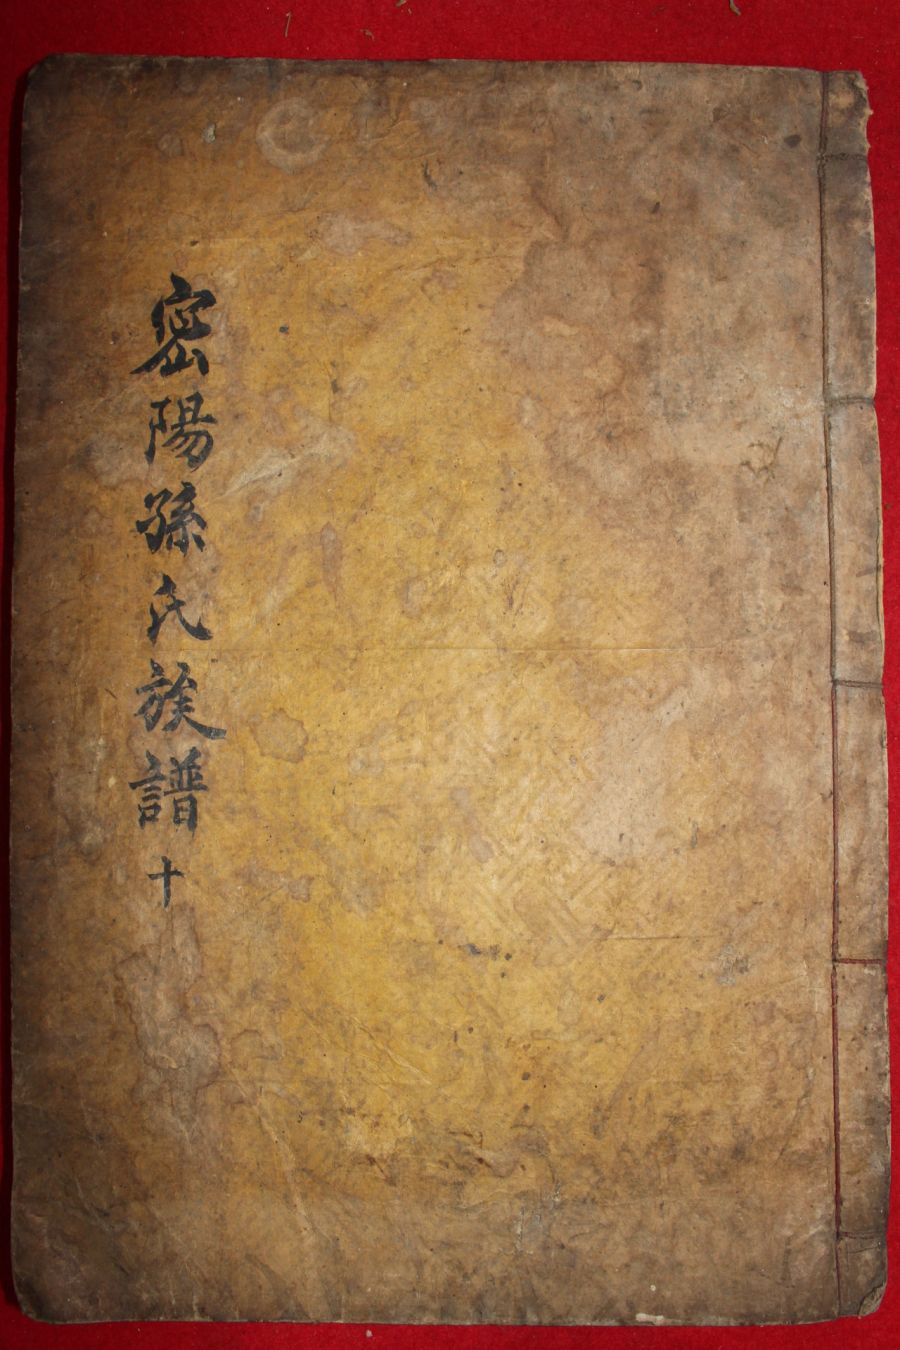 密陽孫氏族譜 十